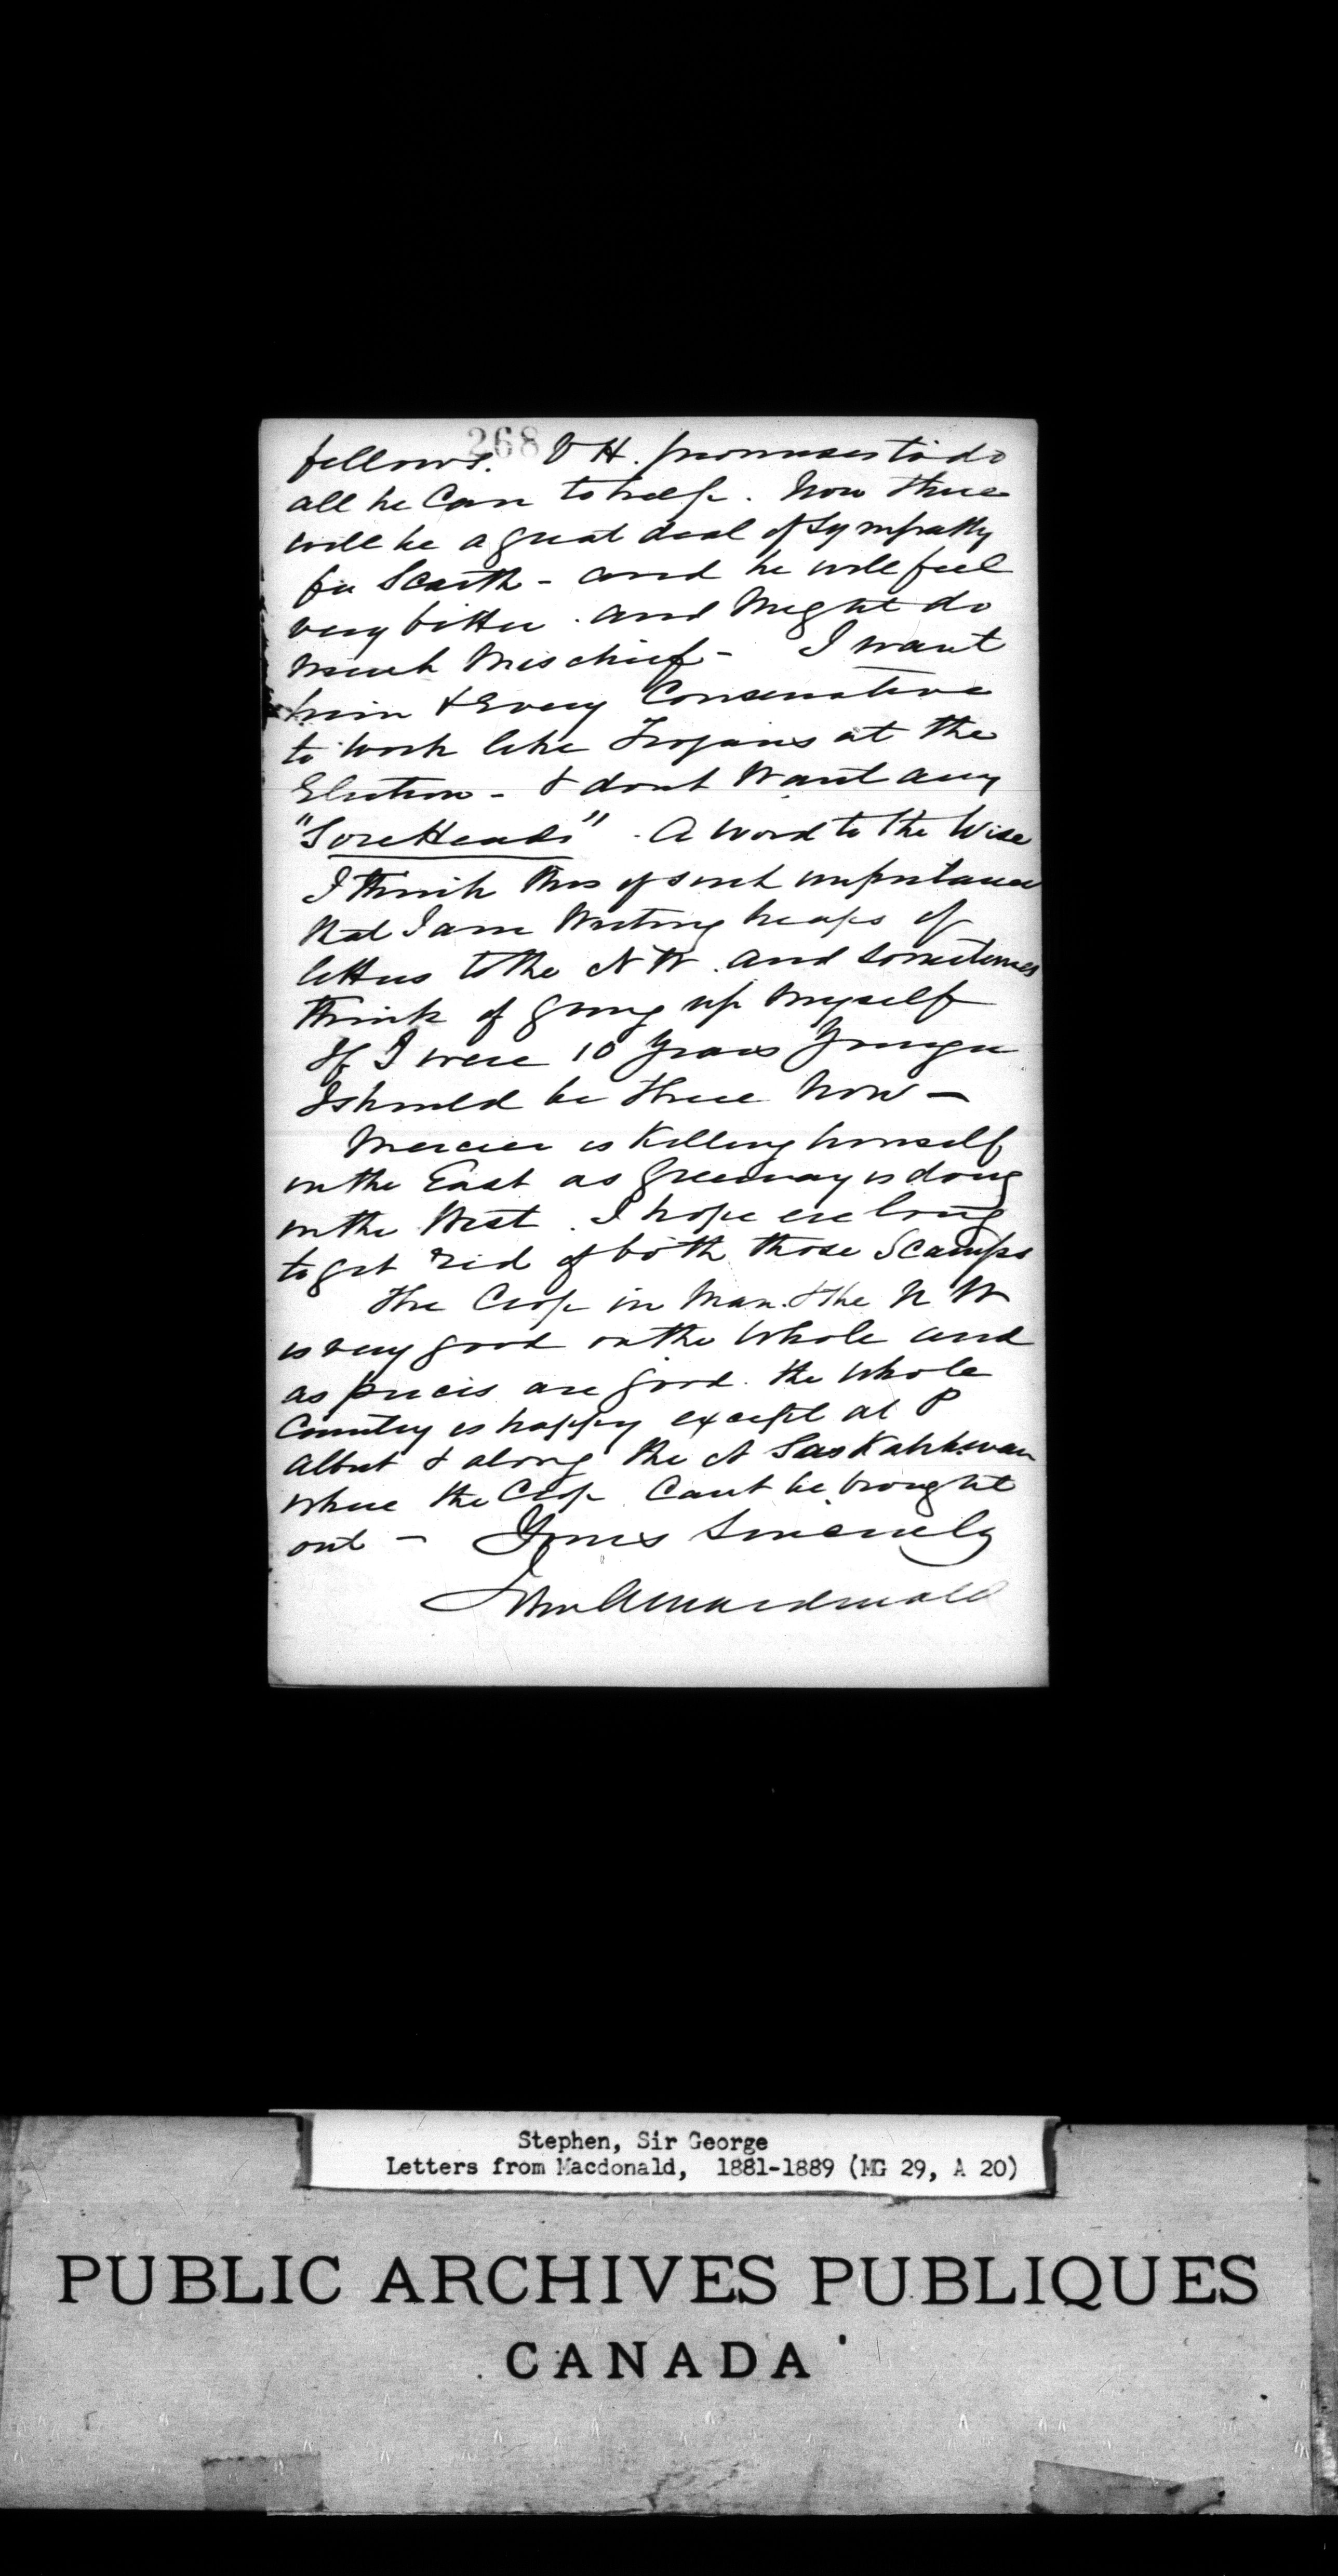 268
fellows. V H. promises to do
all he Can to help. Now there
will be a great deal of Sympathy
for Scarth - and he will feel
very bitter. and Might do
Much Mischief - I want
him & Every Conservative
to work like Trojans at the
Election - & dont Want any
"SoreHeads" - A Word to the Wise
I think this of such importance
that I am Writing heaps of
letters to the N W. and sometimes
think of going up Myself
If I were 10 Years Younger
I should be there Now -
Mercier is Killing himself
in the East as Greenway is doing
in the West. I hope ere long
to get rid of both those Scamps
The Crop in Man. & the N W
is very good on the Whole and
as prices are good. the Whole
Country is happy except at P
Albert & along the N Saskatchewan
where the Crop Cant be brought
out - Yours Sincerely
John A Macdonald
Stephen, Sir George
Letters from Macdonald, 1881-1889 (MG 29, A 20)
PUBLIC ARCHIVES PUBLIQUES
CANADA